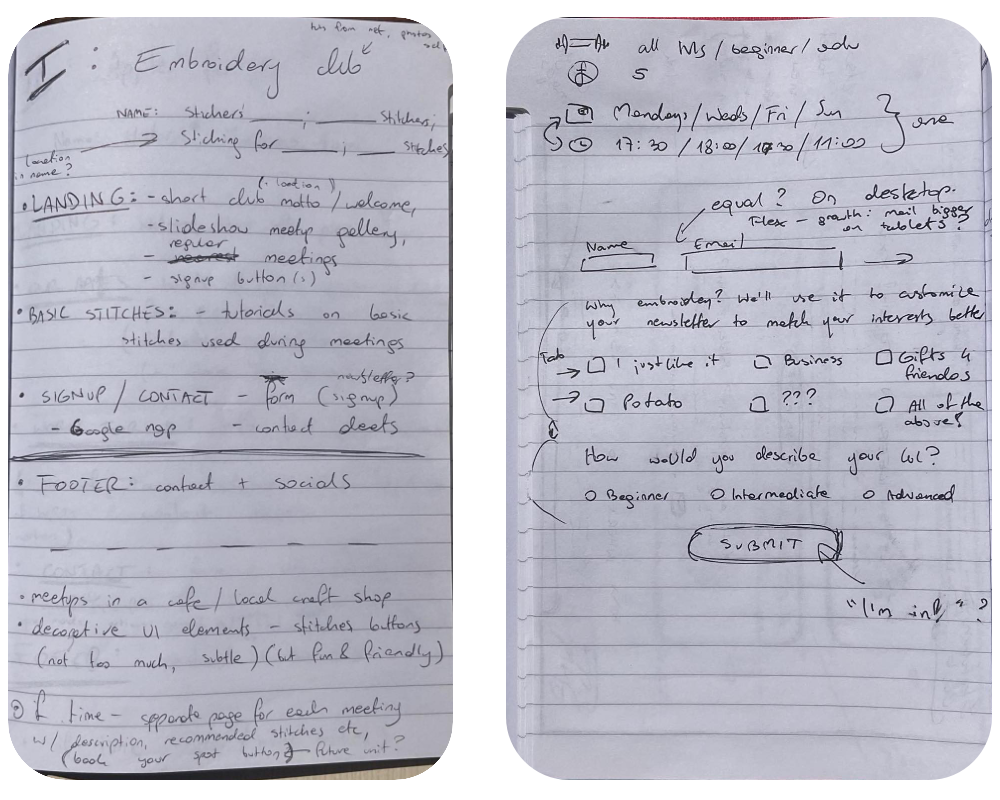 I: Embroidery club
pics from net, photos
NAME: Stichers' ____ ; ____ Stitchers;
Stiching for ____ ; ____ stitches
Location
in name?
(· location)
• LANDING: - short club motto / welcome,
- slideshow meetup gallery,
regular
- meetings
- signup button(s)
• BASIC STITCHES: - tutorials on basic
stitches used during meetings
newsletter?
• SIGNUP / CONTACT - form (signup)
- Google map - contact deets
• FOOTER: contact + socials
• meetups in a cafe / local craft shop
• decorative UI elements - stitches buttons
(not too much, subtle) (but fun & friendly)
If time - separate page for each meeting
w/ description, recommended stitches etc,
(book your spot button) future unit?
all lvls / beginner / adv
5
Mondays / Weds / Fri / Sun
one
17:30 / 18:00 / 17:30 / 11:00
equal? On desktop.
Flex - growth: mail bigger
on tablets?
Name Email
Why embroidey? We'll use it to customize
your newsletter to match your interests better
Tab
I just like it Business Gifts 4
friendos
Potato ??? All of the
above!
How would you describe your lvl?
Beginner Intermediate Advanced
SUBMIT
"I'm in!"?